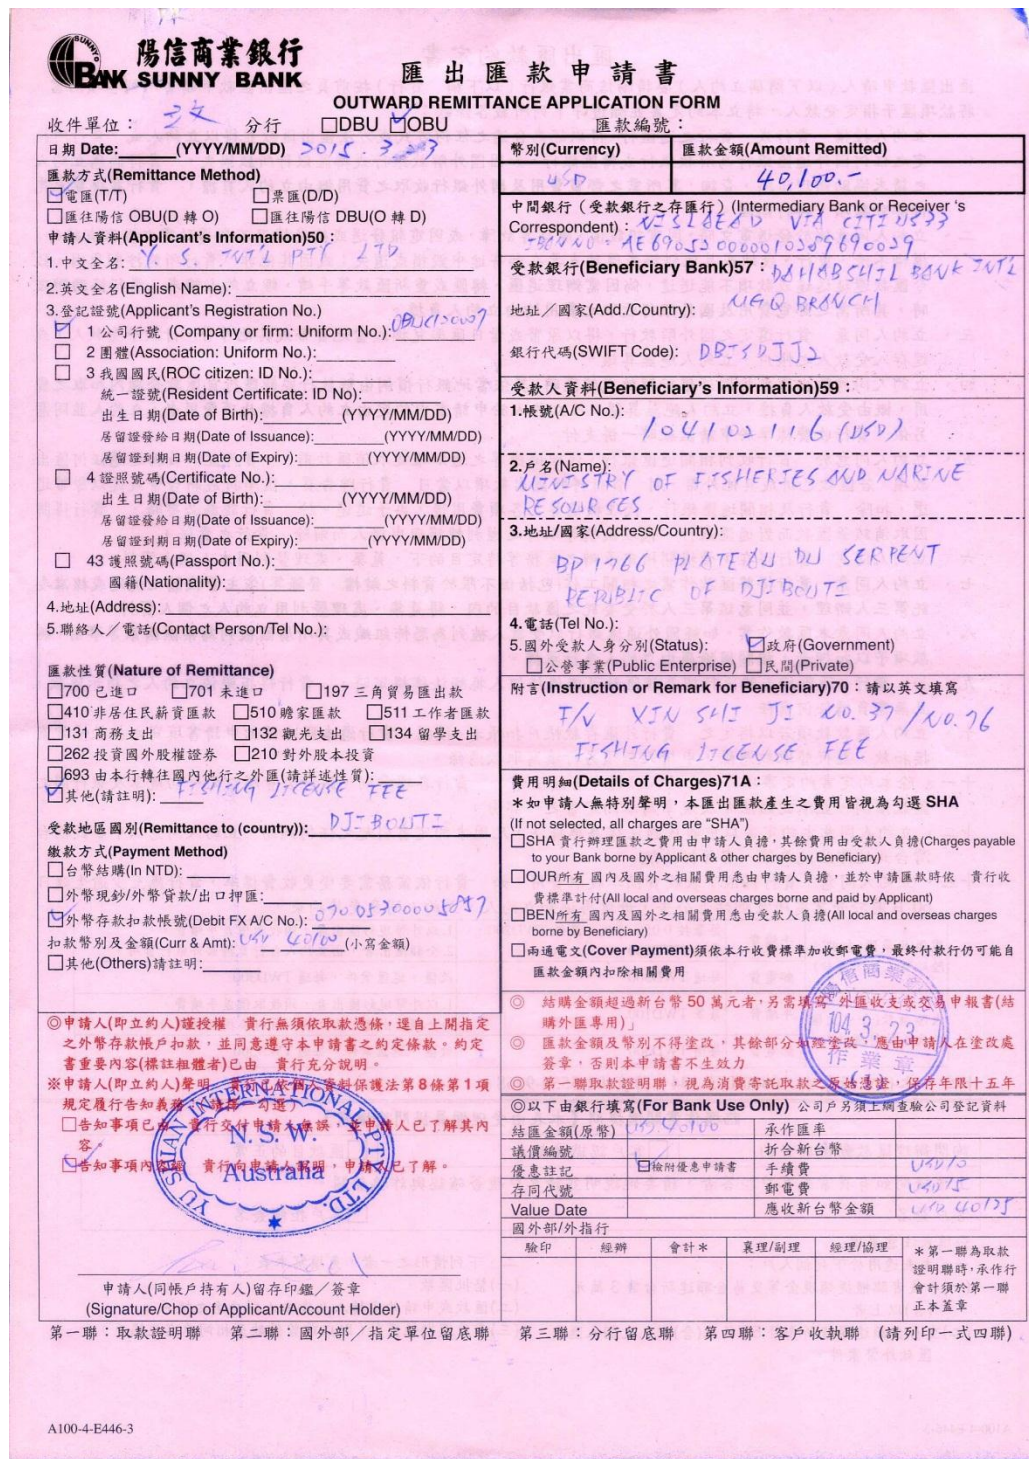 陽信商業銀行
SUNNY BANK
匯出匯款申請書
OUTWARD REMITTANCE APPLICATION FORM
收件單位： 分行 □DBU ☑OBU 匯款編號：
日期 Date: (YYYY/MM/DD) 2015. 3. 23
匯款方式(Remittance Method)
☑電匯(T/T) □票匯(D/D)
□匯往陽信 OBU(D 轉 O) □匯往陽信 DBU(O 轉 D)
申請人資料(Applicant's Information)50：
1.中文全名: Y. S. INT'L PTY LTD
2.英文全名(English Name):
3.登記證號(Applicant's Registration No.)
☑ 1 公司行號 (Company or firm: Uniform No.):
□ 2 團體(Association: Uniform No.):
□ 3 我國國民(ROC citizen: ID No.):
統一證號(Resident Certificate: ID No):
出生日期(Date of Birth): (YYYY/MM/DD)
居留證發給日期(Date of Issuance): (YYYY/MM/DD)
居留證到期日期(Date of Expiry): (YYYY/MM/DD)
□ 4 證照號碼(Certificate No.):
出生日期(Date of Birth): (YYYY/MM/DD)
居留證發給日期(Date of Issuance): (YYYY/MM/DD)
居留證到期日期(Date of Expiry): (YYYY/MM/DD)
□ 43 護照號碼(Passport No.):
國籍(Nationality):
4.地址(Address):
5.聯絡人／電話(Contact Person/Tel No.):
匯款性質(Nature of Remittance)
□700 已進口 □701 未進口 □197 三角貿易匯出款
□410 非居住民薪資匯款 □510 贍家匯款 □511 工作者匯款
□131 商務支出 □132 觀光支出 □134 留學支出
□262 投資國外股權證券 □210 對外股本投資
□693 由本行轉往國內他行之外匯(請詳述性質):
☑其他(請註明): FISHING LICENSE FEE
受款地區國別(Remittance to (country)): DJIBOUTI
繳款方式(Payment Method)
□台幣結購(In NTD):
□外幣現鈔/外幣貸款/出口押匯:
☑外幣存款扣款帳號(Debit FX A/C No.):
扣款幣別及金額(Curr & Amt): USD 40100 (小寫金額)
□其他(Others)請註明:
◎申請人(即立約人)謹授權 貴行無須依取款憑條，逕自上開指定
之外幣存款帳戶扣款，並同意遵守本申請書之約定條款。約定
書重要內容(標註粗體者)已由 貴行充分說明。
※申請人(即立約人)聲明 貴行已依個人資料保護法第 8 條第 1 項
規定履行告知義務 勾選)
□告知事項已由 貴行交付申請人無誤，並申請人已了解其內
容。
☑告知事項內容經 貴行向申請人說明，申請人已了解。
YU SHIAN INTERNATIONAL PTY LTD.
N. S. W.
Australia
申請人(同帳戶持有人)留存印鑑／簽章
(Signature/Chop of Applicant/Account Holder)
幣別(Currency) 匯款金額(Amount Remitted)
USD 40,100.-
中間銀行（受款銀行之存匯行）(Intermediary Bank or Receiver 's
Correspondent)： NISLAEAD VIA CITIUS33
IBAN NO: AE690520000010389690029
受款銀行(Beneficiary Bank)57： DAHABSHIL BANK INT'L
地址／國家(Add./Country): BRANCH
銀行代碼(SWIFT Code): DBISDJJ2
受款人資料(Beneficiary's Information)59：
1.帳號(A/C No.):
104102116 (USD)
2.戶名(Name):
MINISTRY OF FISHERIES AND MARINE
RESOURCES
3.地址/國家(Address/Country):
BP 1766 PLATEAU DU SERPENT
REPUBLIC OF DJIBOUTI
4.電話(Tel No.):
5.國外受款人身分別(Status): ☑政府(Government)
□公營事業(Public Enterprise) □民間(Private)
附言(Instruction or Remark for Beneficiary)70：請以英文填寫
F/V XIN SHI JI NO.37 / NO.76
FISHING LICENSE FEE
費用明細(Details of Charges)71A：
＊如申請人無特別聲明，本匯出匯款產生之費用皆視為勾選 SHA
(If not selected, all charges are "SHA")
□SHA 貴行辦理匯款之費用由申請人負擔，其餘費用由受款人負擔(Charges payable
to your Bank borne by Applicant & other charges by Beneficiary)
□OUR所有 國內及國外之相關費用悉由申請人負擔，並於申請匯款時依 貴行收
費標準計付(All local and overseas charges borne and paid by Applicant)
□BEN所有 國內及國外之相關費用悉由受款人負擔(All local and overseas charges
borne by Beneficiary)
□兩通電文(Cover Payment)須依本行收費標準加收郵電費，最終付款行仍可能自
匯款金額內扣除相關費用
陽信商業銀行
104. 3. 23
作業章
◎ 結購金額超過新台幣 50 萬元者，另需填寫「外匯收支或交易申報書(結
購外匯專用)」
◎ 匯款金額及幣別不得塗改，其餘部分如經塗改，應由申請人在塗改處
簽章，否則本申請書不生效力
◎ 第一聯取款證明聯，視為消費寄託取款之原始憑證，保存年限十五年
◎以下由銀行填寫(For Bank Use Only) 公司戶另須上網查驗公司登記資料
結匯金額(原幣) USD 40100 承作匯率
議價編號 折合新台幣
優惠註記 ☑檢附優惠申請書 手續費 USD10
存同代號 郵電費 USD15
Value Date 應收新台幣金額 USD 40125
國外部/外指行
驗印 經辦 會計＊ 襄理/副理 經理/協理
＊第一聯為取款
證明聯時，承作行
會計須於第一聯
正本蓋章
第一聯：取款證明聯 第二聯：國外部／指定單位留底聯 第三聯：分行留底聯 第四聯：客戶收執聯 (請列印一式四聯)
A100-4-E446-3